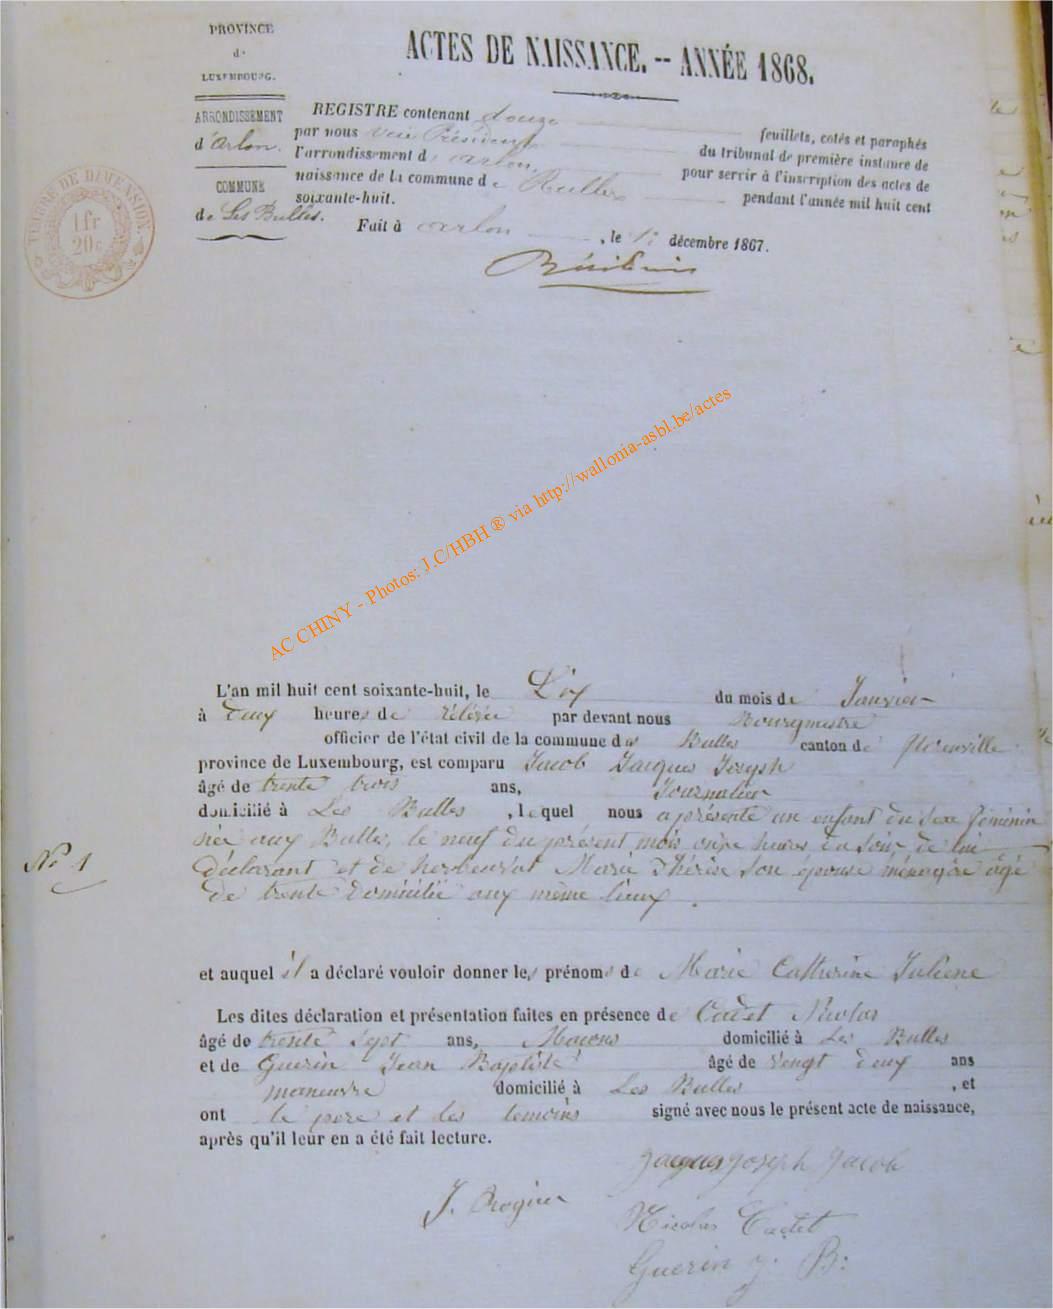 PROVINCE
de
LUXEMBOURG.
ARRONDISSEMENT
d'Arlon.
COMMUNE
de Les Bulles.
TIMBRE DE DIMENSION.
1 fr
20 c
ACTES DE NAISSANCE. -- ANNÉE 1868.
REGISTRE contenant douze feuillets, cotés et paraphés
par nous Vice Président du tribunal de première instance de
l'arrondissement d'arlon, pour servir à l'inscription des actes de
naissance de la commune de Bulles pendant l'année mil huit cent
soixante-huit.
Fait à arlon, le décembre 1867.
AC CHINY - Photos: J.C/HBH ® via http://wallonia-asbl.be/actes
L'an mil huit cent soixante-huit, le Dix du mois de Janvier
à Deux heures de rélévée par devant nous Bourgmestre
officier de l'état civil de la commune des Bulles canton de florenville
province de Luxembourg, est comparu Jacob Jacques Joseph
âgé de trente trois ans, Journalier
domicilié à Les Bulles, lequel nous a présenté un enfant du sexe féminin
née aux Bulles, le neuf du présent mois onze heures du soir de lui
No 1
déclarant et de Marie Thérèse son épouse ménagère agé
de trente domicilié aux même lieux.
et auquel il a déclaré vouloir donner les prénoms de Marie Catherine Juliene
Les dites déclaration et présentation faites en présence de Cadet Nicolas
âgé de trente sept ans, Macons domicilié à Les Bulles
et de Guerin Jean Baptiste âgé de vingt deux ans
maneuvre domicilié à Les Bulles, et
ont le père et les temoins signé avec nous le présent acte de naissance,
après qu'il leur en a été fait lecture.
Jacques Joseph Jacob
Nicolas Cadet
Guerin J. B.